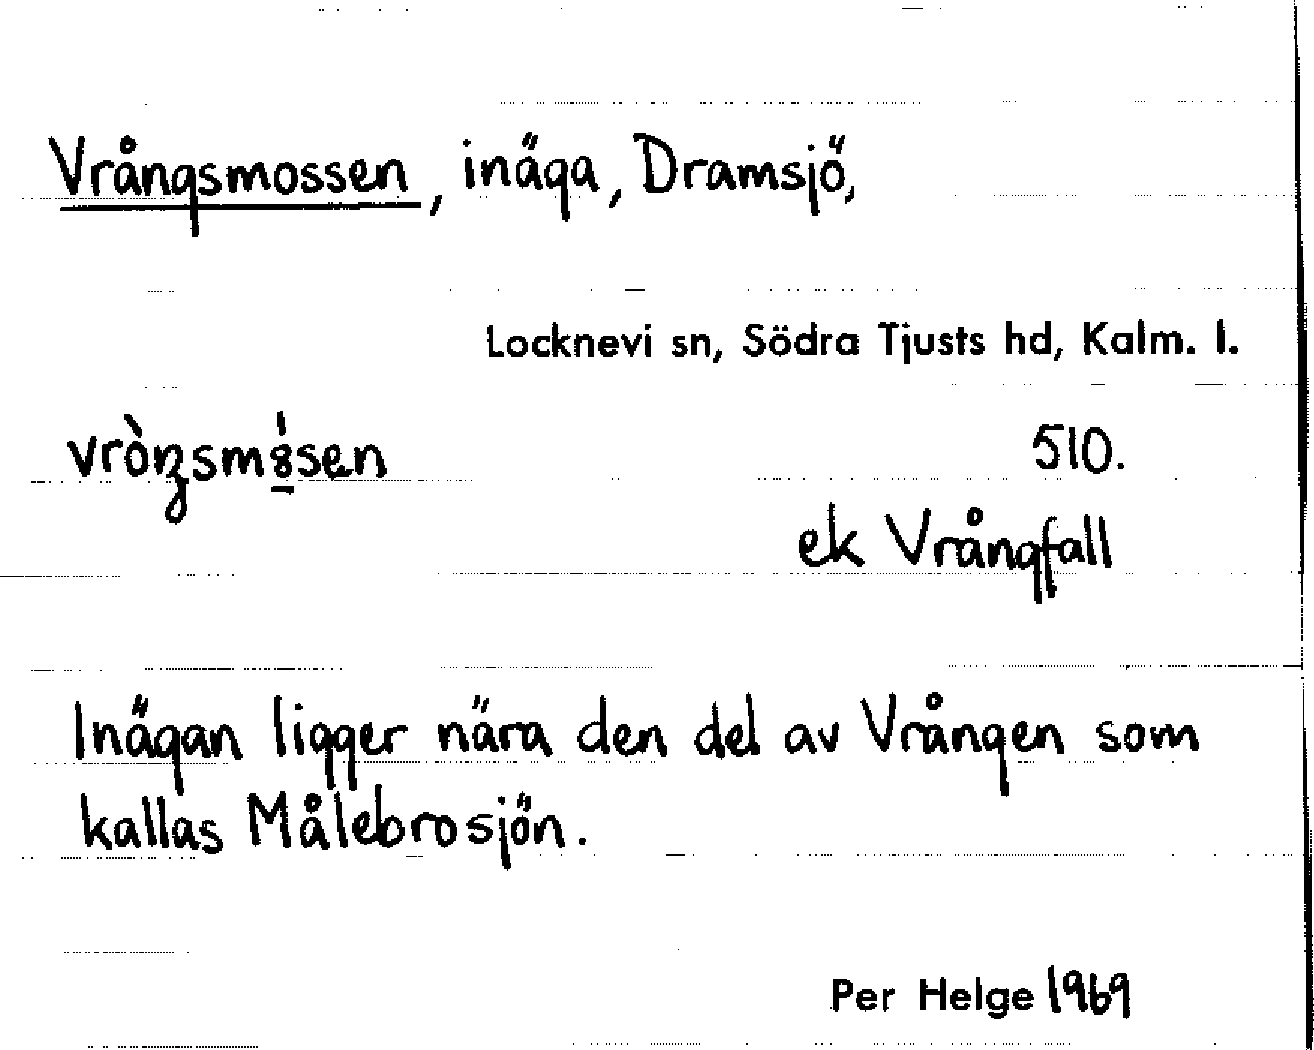 Vrångsmossen, inäga, Dramsjö,
Locknevi sn, Södra Tjusts hd, Kalm. l.
510.
ek Vrångfall
Inägan ligger nära den del av Vrången som
kallas Målebrosjön.
Per Helge 1969